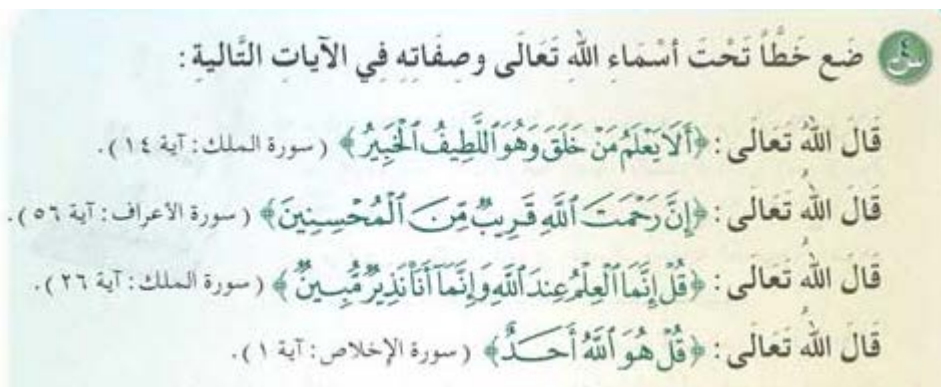 س٤ ضَع خَطًّا تَحْتَ أَسْمَاءِ اللهِ تَعَالَى وصِفَاتِه فِي الآيَاتِ التَّالِيةِ :
قَالَ اللهُ تَعَالَى : ﴿أَلَا يَعْلَمُ مَنْ خَلَقَ وَهُوَ ٱللَّطِيفُ ٱلْخَبِيرُ﴾ ( سورة الملك : آية ١٤ ) .
قَالَ اللهُ تَعَالَى : ﴿إِنَّ رَحْمَتَ ٱللَّهِ قَرِيبٌ مِّنَ ٱلْمُحْسِنِينَ﴾ ( سورة الأعراف : آية ٥٦ ) .
قَالَ اللهُ تَعَالَى : ﴿قُلْ إِنَّمَا ٱلْعِلْمُ عِندَ ٱللَّهِ وَإِنَّمَآ أَنَا۠ نَذِيرٌ مُّبِينٌ﴾ ( سورة الملك : آية ٢٦ ) .
قَالَ اللهُ تَعَالَى : ﴿قُلْ هُوَ ٱللَّهُ أَحَدٌ﴾ ( سورة الإخلاص : آية ١ ) .